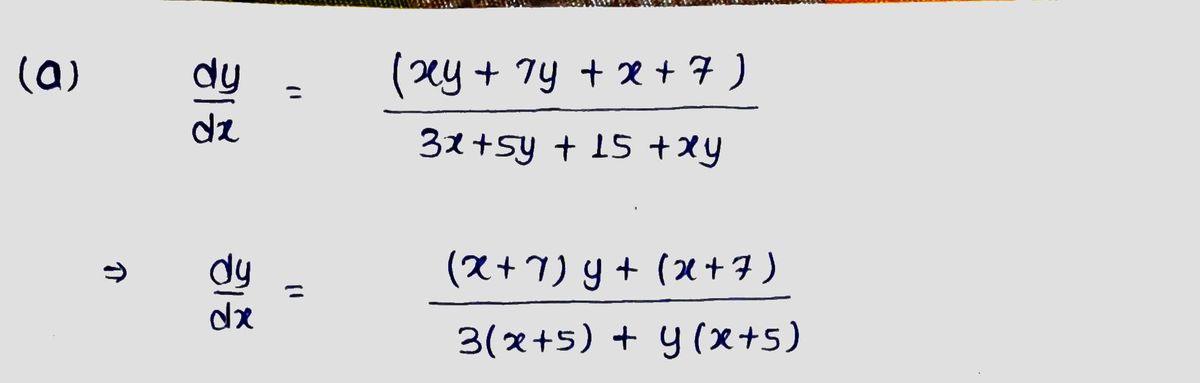 (a) dy/dx = (xy + 7y + x + 7) / 3x + 5y + 15 + xy
⇒ dy/dx = (x+7) y + (x+7) / 3(x+5) + y (x+5)